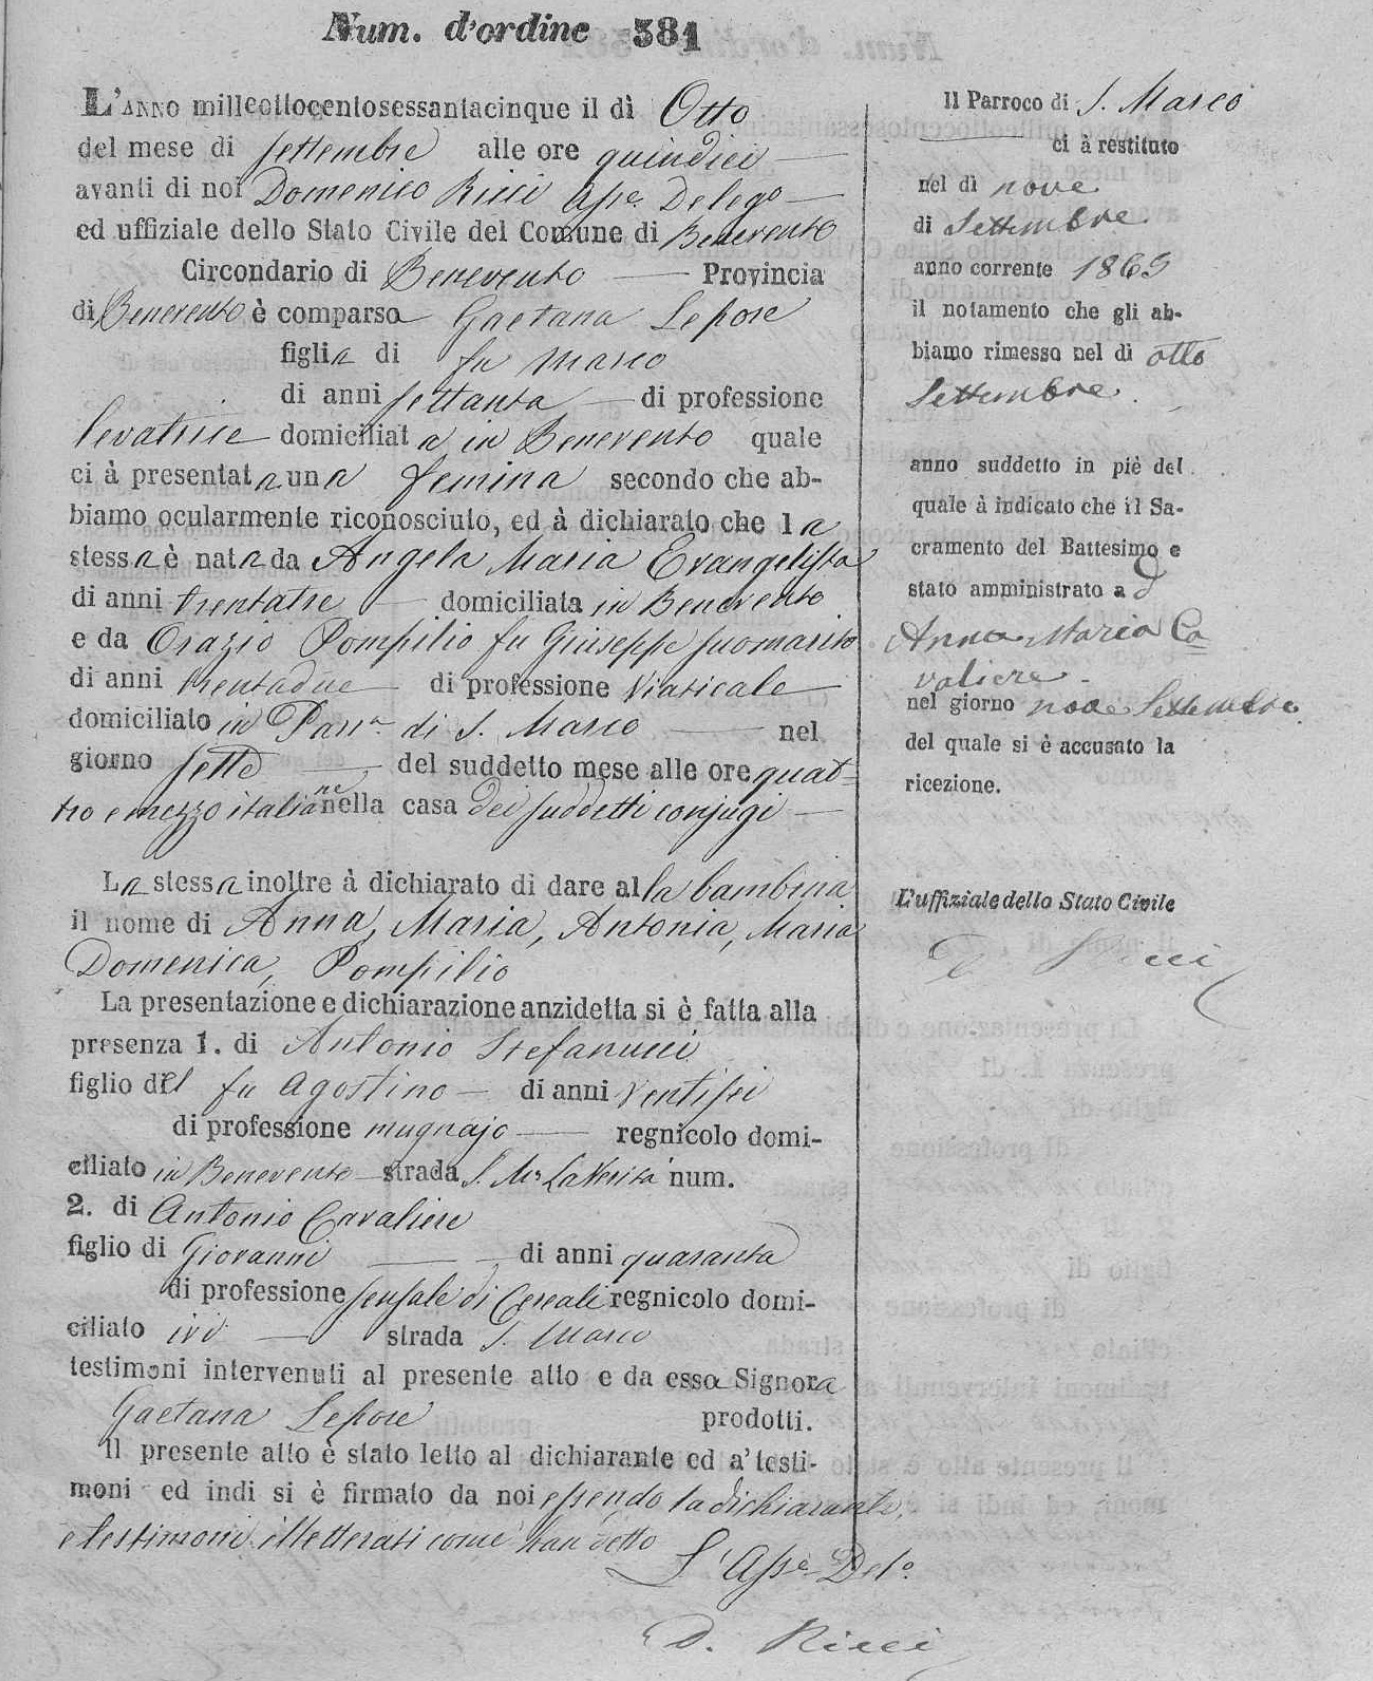 Num. d'ordine 381
L'ANNO milleottocentosessantacinque il dì Otto
del mese di Settembre alle ore quindici
avanti di noi Domenico Ricci Asse Delego
ed uffiziale dello Stato Civile del Comune di Benevento
Circondario di Benevento Provincia
di Benevento è comparsa Gaetana Lepore
figlia di fu Marco
di anni settanta di professione
levatrice domiciliata in Benevento quale
ci à presentata una femina secondo che ab-
biamo ocularmente riconosciuto, ed à dichiarato che la
stessa è nata da Angela Maria Evangelista
di anni trentatre domiciliata in Benevento
e da Orazio Pompilio fu Giuseppe suo marito
di anni trentadue di professione Viaticale
domiciliato in Parr.a di S. Marco nel
giorno sette del suddetto mese alle ore quat=
tro e mezzo italiane nella casa dei suddetti conjugi
La stessa inoltre à dichiarato di dare alla bambina
il nome di Anna, Maria, Antonia, Maria
Domenica, Pompilio
La presentazione e dichiarazione anzidetta si è fatta alla
presenza 1. di Antonio Stefanucci
figlio del fu Agostino di anni Ventisei
di professione mugnajo regnicolo domi-
ciliato in Benevento strada S. Ma La Verita num.
2. di Antonio Cavaliere
figlio di Giovanni di anni quaranta
di professione sensale di Cereali regnicolo domi-
ciliato ivi strada S. Marco
testimoni intervenuti al presente atto e da essa Signora
Gaetana Lepore prodotti.
Il presente atto è stato letto al dichiarante ed a' testi-
moni ed indi si è firmato da noi essendo la dichiarante,
e testimoni illetterati come han detto
L'Asse Delo
D. Ricci
Il Parroco di S. Marco
ci à restituto
nel dì nove
di Settembre
anno corrente 1865
il notamento che gli ab-
biamo rimesso nel dì otto
Settembre
anno suddetto in piè del
quale à indicato che il Sa-
cramento del Battesimo e
stato amministrato a d
Anna Maria Ca
valiere
nel giorno nove Settembre
del quale si è accusato la
ricezione.
L'uffiziale dello Stato Civile
D. Ricci